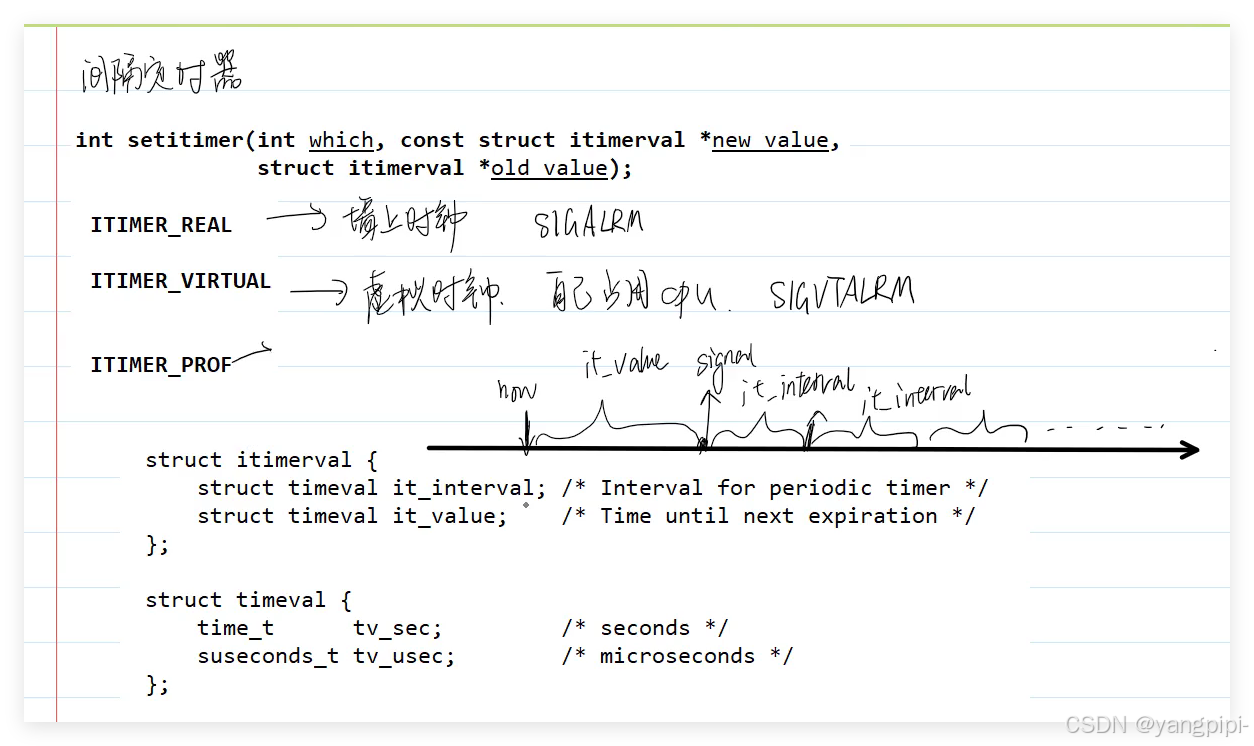 间隔定时器
int setitimer(int which, const struct itimerval *new value,
struct itimerval *old value);
ITIMER_REAL → 墙上时钟 SIGALRM
ITIMER_VIRTUAL → 虚拟时钟. 自己占用 CPU. SIGVTALRM
ITIMER_PROF →
now it_value signal it_interval it_interval
struct itimerval {
struct timeval it_interval; /* Interval for periodic timer */
struct timeval it_value; /* Time until next expiration */
};
struct timeval {
time_t tv_sec; /* seconds */
suseconds_t tv_usec; /* microseconds */
};
CSDN @yangpipi-